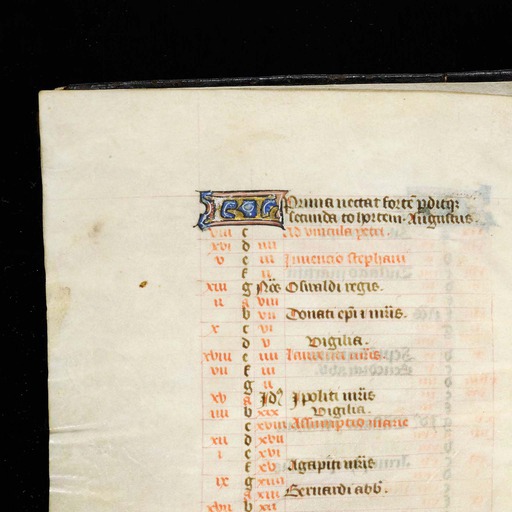 Prima necat fortē pditq;
secunda cohortem. Augustus.
viii c Ad vincula petri.
xvi d iiii
v e iii Jnuencio stephani
f ii
xiii g Noē Oswaldi regis.
ii a viii
b vii Donati epi ⁊ mris.
x c vi
d v Vigilia.
xviii e iiii Laurencii mris.
vii f iii
g ii
xv a Jdꝰ Jpoliti mris
iiii b xix Vigilia.
c xviii Assumptio marie
xii d xvii
i e xvi
f xv Agapiti mris
ix g xiiii
a xiii Bernardi abb.
xvii b xii